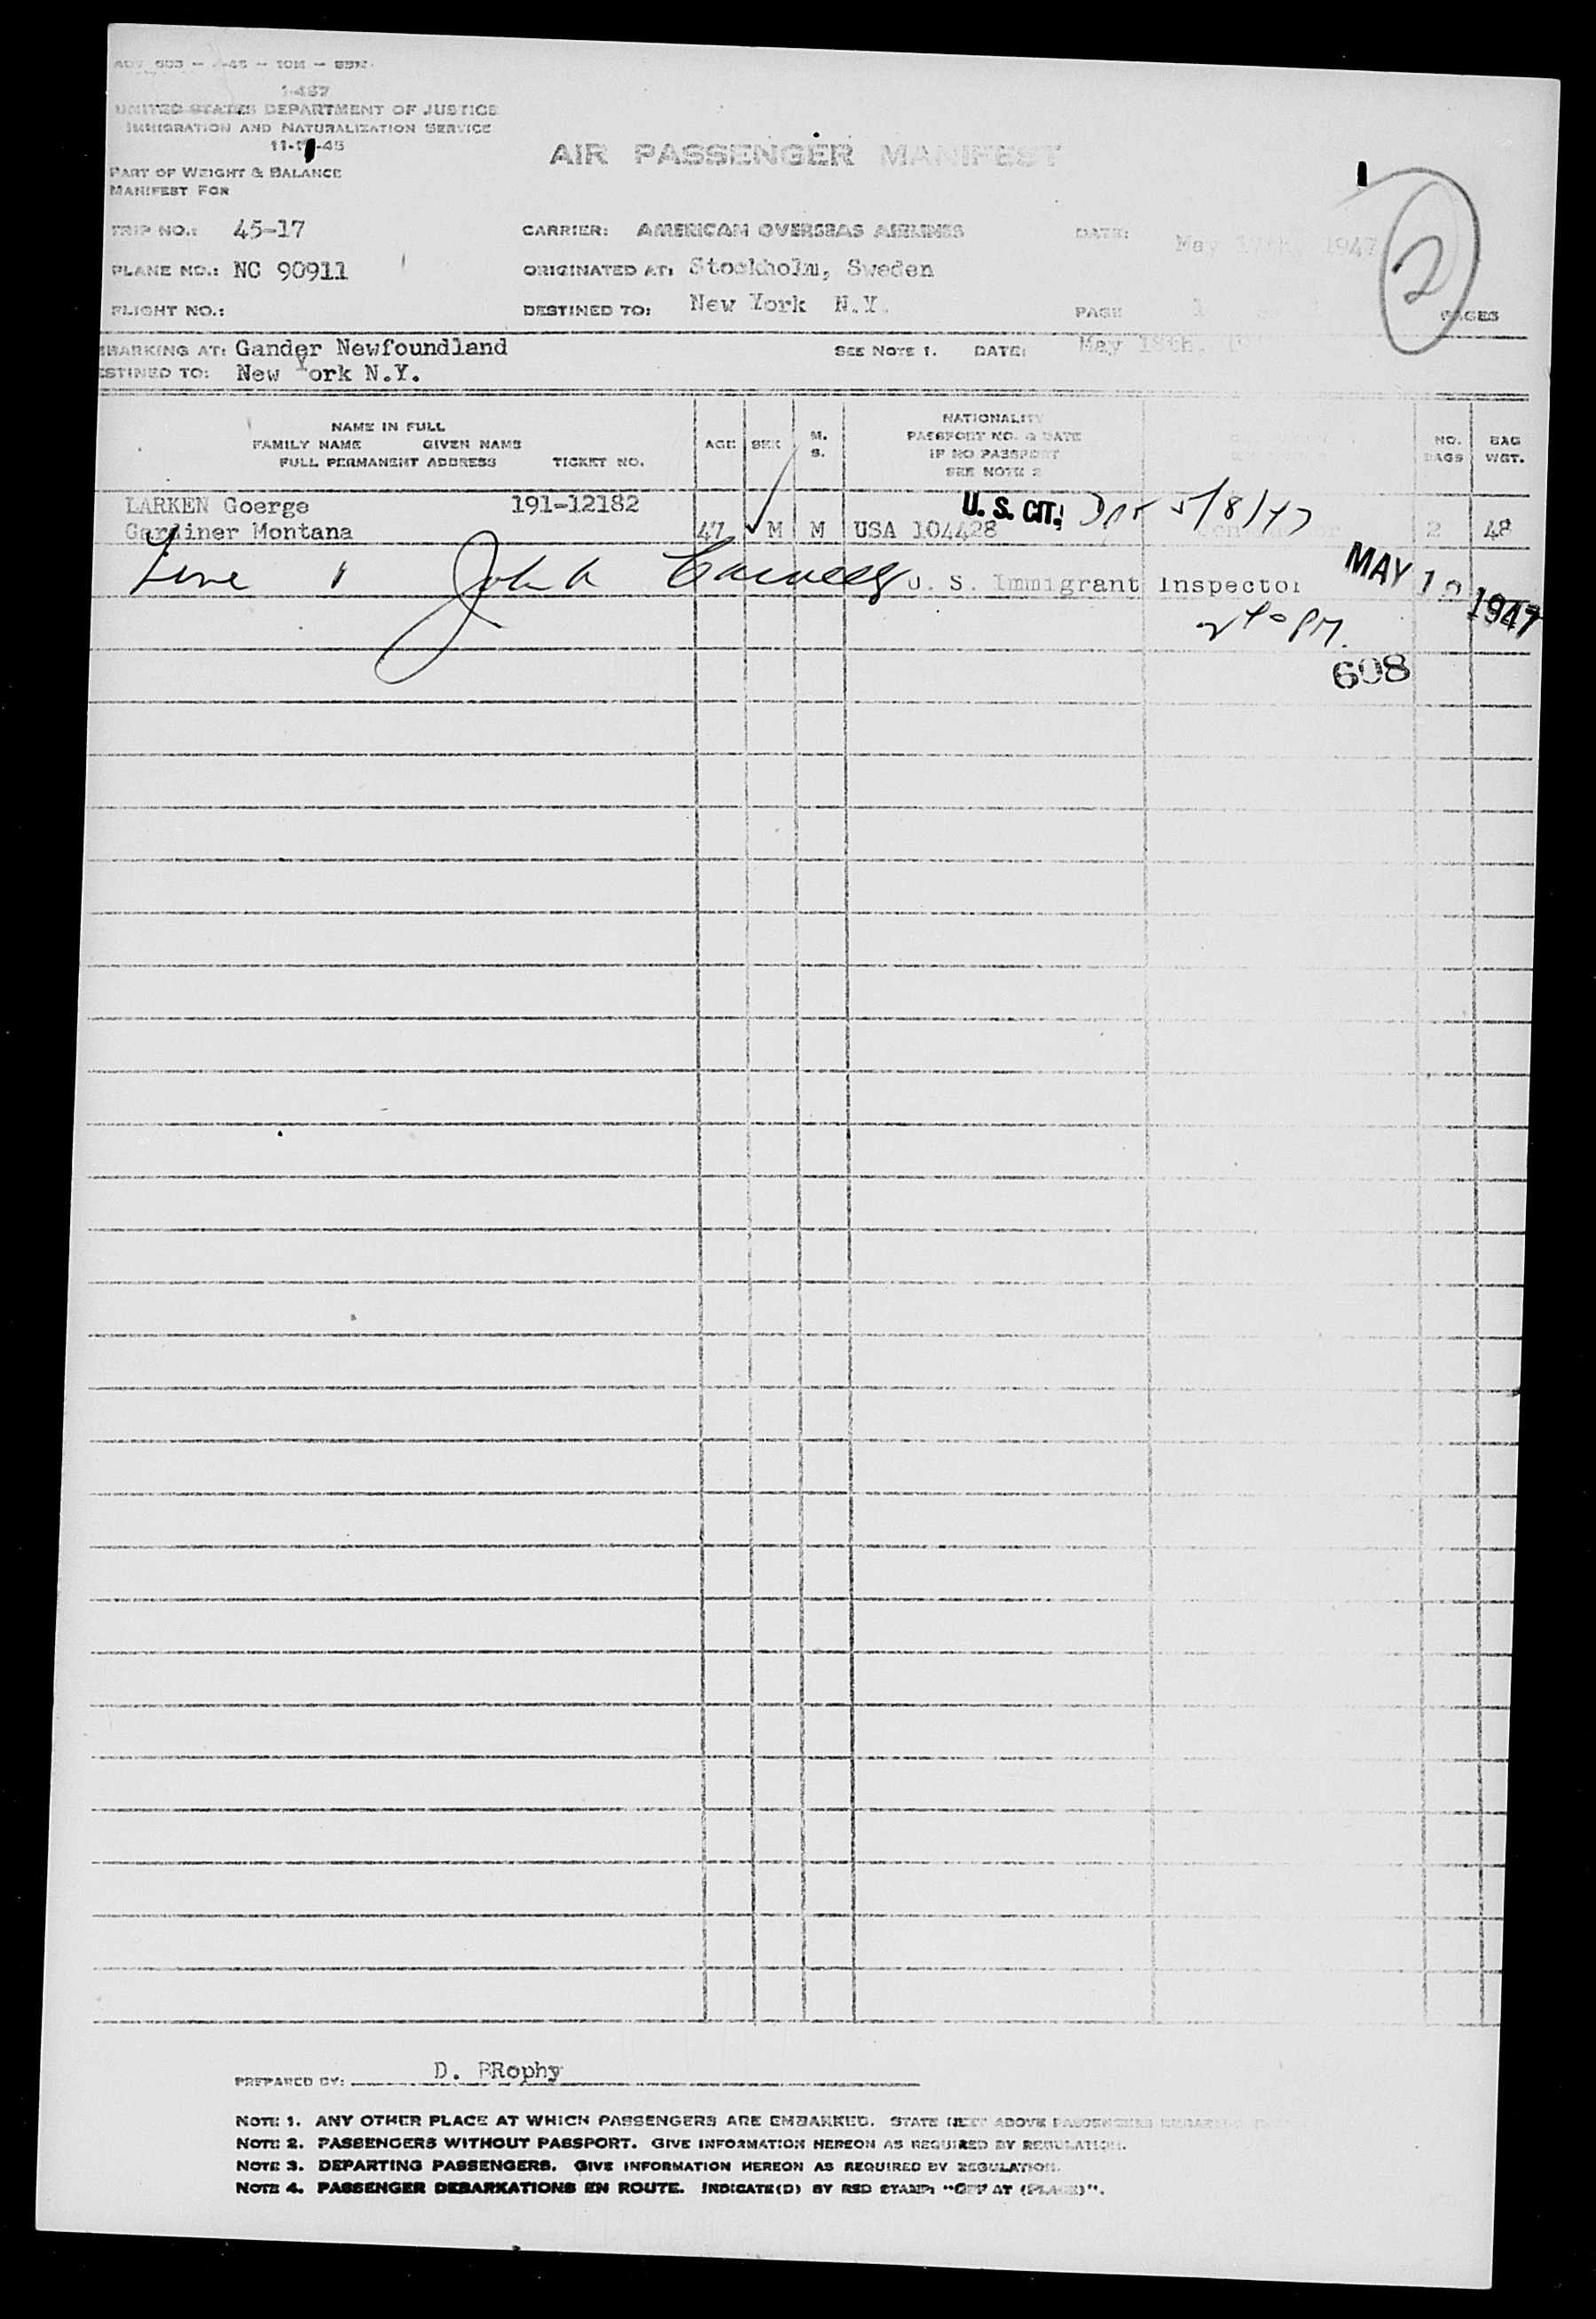 1-467
UNITED STATES DEPARTMENT OF JUSTICE
IMMIGRATION AND NATURALIZATION SERVICE
AIR PASSENGER MANIFEST
PART OF WEIGHT & BALANCE
MANIFEST FOR
2
TRIP NO.: 45-17 CARRIER: AMERICAN OVERSEAS AIRLINES DATE: May 17th, 1947
PLANE NO.: NC 90911 ORIGINATED AT: Stockholm, Sweden
FLIGHT NO.: DESTINED TO: New York N.Y. PAGE 1 PAGES
EMBARKING AT: Gander Newfoundland SEE NOTE 1. DATE: May 18th,
DESTINED TO: New York N.Y.
NAME IN FULL
FAMILY NAME GIVEN NAME
FULL PERMANENT ADDRESS TICKET NO.
AGE
SEX
M.
S.
NATIONALITY
PASSPORT NO. & DATE
IF NO PASSPORT
SEE NOTE 2
NO.
BAGS
BAG
WGT.
LARKEN Goerge 191-12182 U. S. CIT. 5/8/47
Gardiner Montana 47 M M USA 104428 2 48
Line 1 John U. S. Immigrant Inspector MAY 1947
240 PM.
608
PREPARED BY: D. PRophy
NOTE 1. ANY OTHER PLACE AT WHICH PASSENGERS ARE EMBARKED. STATE NEXT ABOVE PASSENGERS
NOTE 2. PASSENGERS WITHOUT PASSPORT. GIVE INFORMATION HEREON AS REQUIRED BY REGULATION.
NOTE 3. DEPARTING PASSENGERS. GIVE INFORMATION HEREON AS REQUIRED BY REGULATION.
NOTE 4. PASSENGER DEBARKATIONS EN ROUTE. INDICATE(D) BY RED STAMP: "OFF AT (PLACE)".